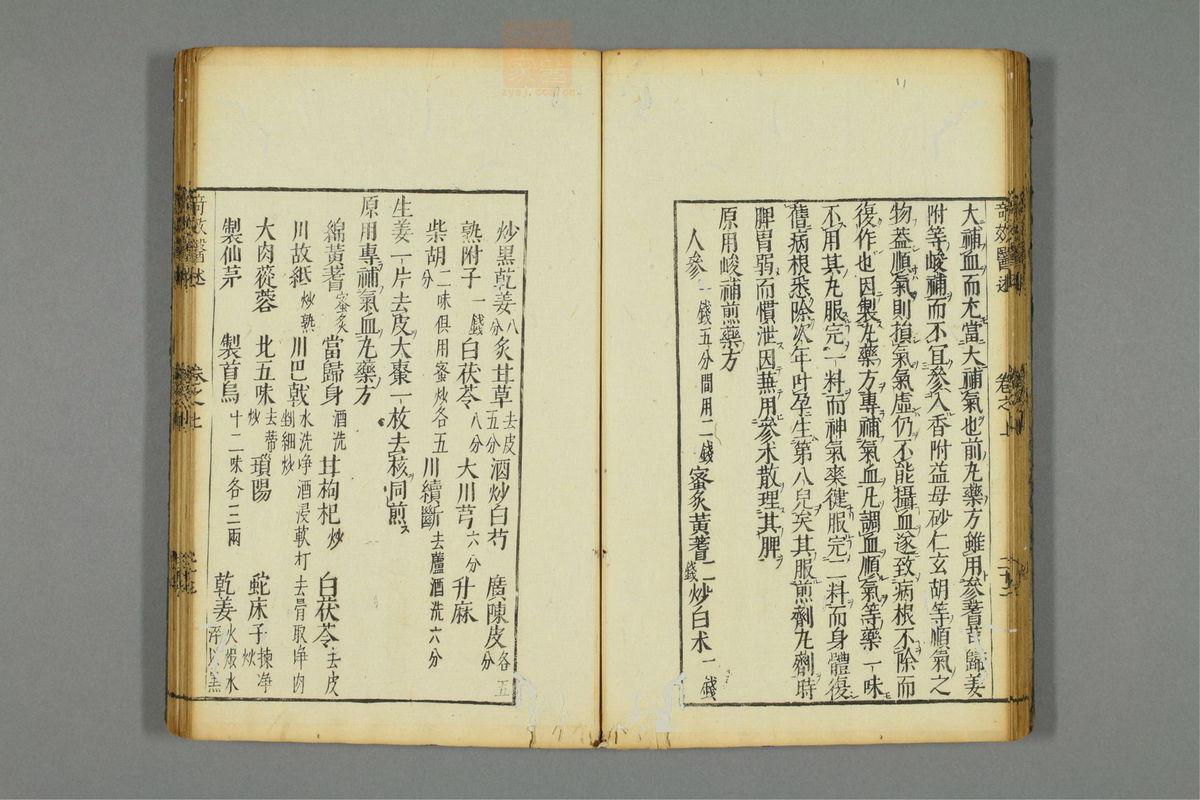 大補血而尤當大補氣也前丸藥方雖用參蓍芎歸姜
附等峻補而不宜參入香附益母砂仁玄胡等順氣之
物蓋順氣則損氣氣虛仍不能攝血遂致病根不除而
復作也因製丸藥方專補氣血凡調血順氣等藥一味
不用其丸服完一料而神氣爽健服完二料而身體復
舊病根悉除次年叶孕生第八兒矣其服煎劑丸劑時
脾胃弱而慣泄因兼用參朮散理其脾
原用峻補煎藥方
人參一錢五分間用二錢 蜜炙黃蓍二錢 炒白朮一錢
炒黑乾姜八分 炙甘草去皮五分 酒炒白芍 廣陳皮各五分
熟附子一錢 白茯苓八分 大川芎六分 升麻
柴胡二味俱用蜜炒各五分 川續斷去蘆酒洗六分
生姜一片去皮大棗一枚去核同煎
原用專補氣血丸藥方
綿黃蓍蜜炙 當歸身酒洗 甘枸杞炒 白茯苓去皮
川故紙炒熟 川巴戟水洗凈酒浸軟打去骨取凈肉剉細炒
大肉蓯蓉 北五味去蒂炒 瑣陽 蛇床子揀凈炒
製仙茅 製首烏十二味各三兩 乾姜火煅水淬以黑
奇效醫述
卷之上
二十二